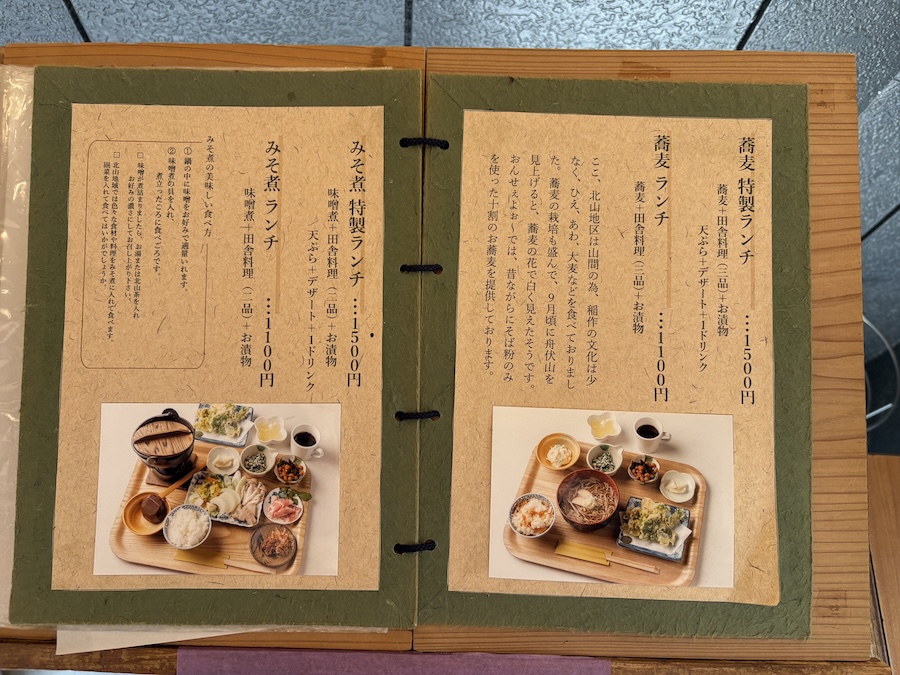 蕎麦 特製ランチ …1500円
蕎麦+田舎料理(三品)+お漬物
天ぷら+デザート+1ドリンク
蕎麦 ランチ …1100円
蕎麦+田舎料理(三品)+お漬物
ここ、北山地区は山間の為、稲作の文化は少
なく、ひえ、あわ、大麦などを食べておりまし
た。蕎麦の栽培も盛んで、9月頃に舟伏山を
見上げると、蕎麦の花で白く見えたそうです。
おんせぇよぉ~では、昔ながらにそば粉のみ
を使った十割のお蕎麦を提供しております。
みそ煮 特製ランチ …1500円
味噌煮+田舎料理(二品)+お漬物
天ぷら+デザート+1ドリンク
みそ煮 ランチ …1100円
味噌煮+田舎料理(二品)+お漬物
みそ煮の美味しい食べ方
①鍋の中に味噌をお好みで適量いれます。
②味噌煮の具を入れ、
煮立ったころに食べごろです。
□味噌が煮詰まりましたら、お湯または北山茶を入れ
お好みの濃さにしてお召し上がり下さい。
□北山地域では色々な食材や料理をみそ煮に入れて食べます。
副菜を入れて食べてはいかがでしょうか。